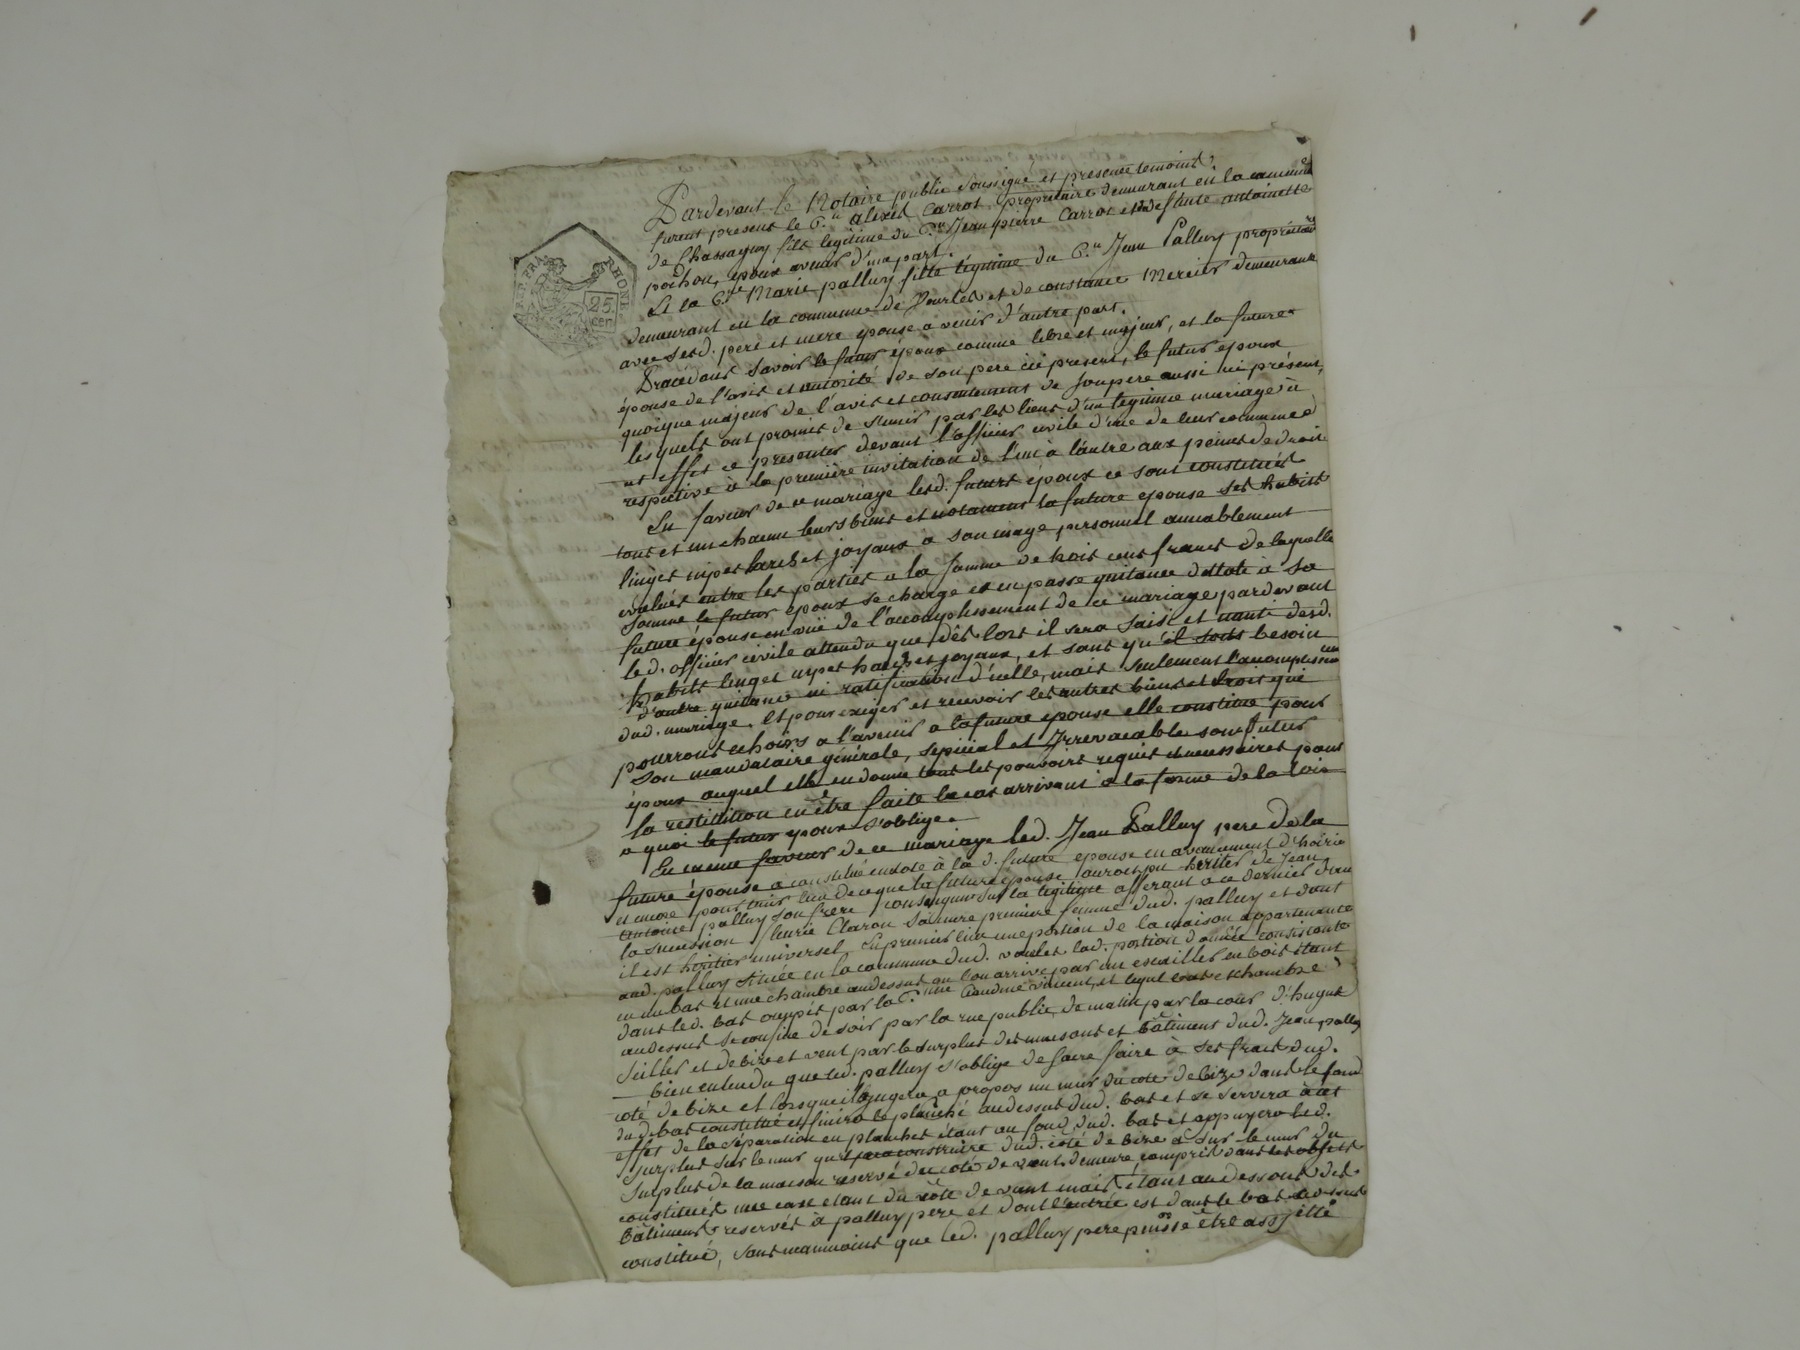 REP. FRA. RHONE
25 cen.
Pardevant le Notaire public soussigné et presence temoins.
furent present le C.en alexis Carrot propriétaire demeurant en la commune
de Chassagny fils legitime du C.en Jean pierre Carrot et de funte antoinette
pochon, époux avenir d'une part.
Et la C.ne Marie palluy fille légitime du C.en Jean Palluy propriétaire
demeurant en la commune de Vourles et de constance Mercier demeurants
avec sesd. pere et mere épouse a venir d'autre part.
Procédant savoir le futur époux comme libre et majeur, et la future
épouse de l'avis et autorité de son pere ici present, le futur époux
quoique majeur de l'avis et consentement de son pere aussi ici présent,
lesquels ont promis de s'unir par les liens d'un légitime mariage à
cet effet se presenter devant l'officier civile d'une de leur communes
respective à la première invitation de l'un à l'autre aux peines de droit
En faveur de ce mariage lesd. futurs époux se sont constitués
tous et un chacun leurs biens et notament la future epouse ses habits
linges nipes hardes et joyaux a son usage personnel amiablement
évalués entre les parties a la somme de trois cens francs de laquelle
somme le futur époux se charge et en passe quitance dottale a sa
future épouse en vuë de l'accomplissement de ce mariage pardevant
led. officier civile attendu que dès lors il sera saisi et nanti desd.
habits linges nipes hardes et joyaux, et sans qu'il soits besoin
d'autre quitance ni ratification d'icelle, mais seulement l'acomplissem
dud. mariage. Et pour exiger et recevoir les autres biens et droits qui
pourront echoirs a l'avenir a la future epouse elle constitue pour
son mandataire générale, spécial et Irrevocable son futur
époux auquel elle en donne tous les pouvoirs requis et necessaires pour
la restitution en être faite le cas arrivant a la forme de la loi
a quoi le futur époux s'oblige.
En meme faveur de ce mariage led. Jean Palluy pere de la
future épouse a constitué en dote à la d. future epouse en avancement d'hoirie
et encore pour tenir lieu de ce que la future épouse auroit pu heriter de Jean
Antoine palluy son frere consanguin sur la légitime afferant a ce dernier dans
la succession fleurie Claron sa mere première femme dud. palluy et dont
il est héritier universel En premier lieu une portion de la maison appartenante
aud. palluy située en la commune dud. vourles lad. portion donnée consistante
en un bas et une chambre audessus ou l'on arrive par un escailler en bois étant
dans led. bas occupés par la C.ne Claudine vincent, et lequel bas et chambre
audessus se confine de soir par la rue public de matin par la cour d'hugues
Seiller et de bize et vent par le surplus des maisons et bâtiment dud. Jean palluy
bien entendu que led. palluy s'oblige de faire faire à ses frais dud.
coté de bize et lorsqu'il jugera a propos un mur du coté de bize dans le fond
du d. bas constitué et finira le planché audessus dud. bas et se servira à cet
effet de la séparation en planches étant au fond dud. bas et appuyera led.
surplus sur le mur qu'il fera construire dud. coté de bize et sur le mur du
surplus de la maison reservé du coté de vent. demeure compris dans les objets
constitués une cave étant du côté de vent mais étant au dessous des
bâtiments reservés à palluy pere et dont l'entrée est dans le bas ci dessus
constitué, sans neanmoins que led. palluy pere puisse être assujetté